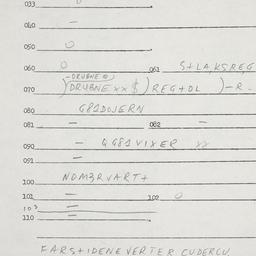 033 0
040 –
050 0
060 0 061 S+LAKSREG
-DRUBNE
070 )DRUBNE xx $) REG+DL )-R.
080 G81DOJERN
081 – 082 –
090 – QG81VIXER xx
091 –
100 NDM3RVART+
101 – 102 0
103 –
110 –
FARS+IDENEVERTER CUDERCU